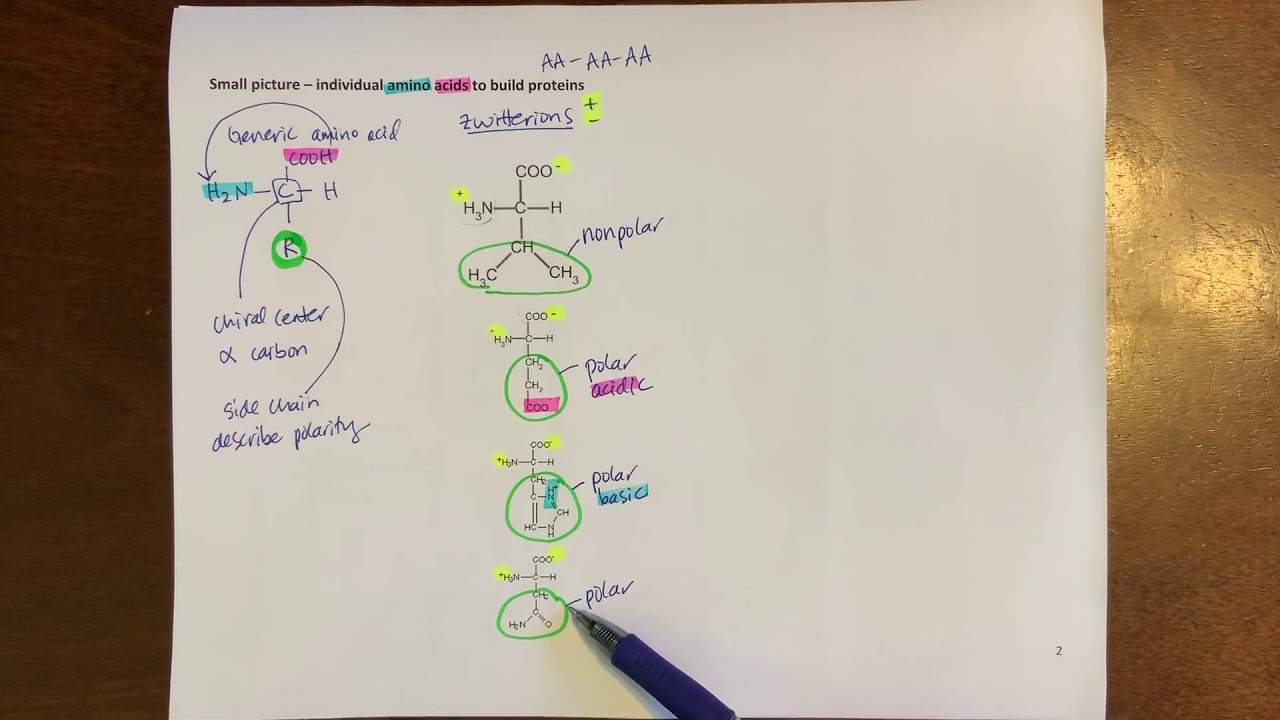 AA-AA-AA
Small picture – individual amino acids to build proteins
zwitterions +
-
Generic amino acid
COOH
H2N-C-H
R
chiral center
α carbon
side chain
describe polarity
COO-
+
H3N-C-H
CH
H3C CH3
nonpolar
COO-
+
H3N-C-H
CH2
CH2
COO
polar
acidic
COO-
+H3N-C-H
CH2
H+
C-N
CH
HC-N
H
polar
basic
COO-
+H3N-C-H
CH2
C
H2N O
polar
2